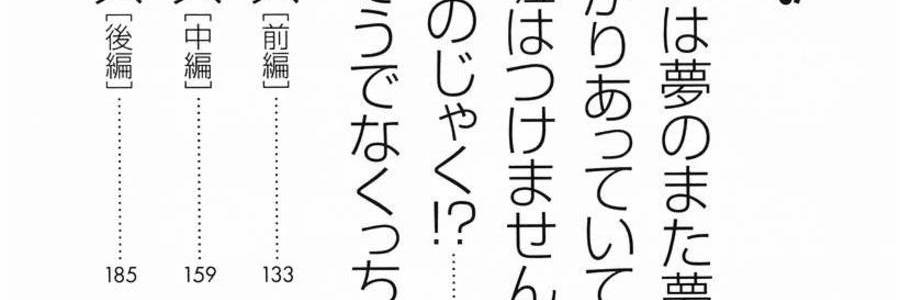 は夢のまた夢
りあっていて
はつけません
のじゃく!?…………
うでなくっち
[前編]…………………133
[中編]…………………159
[後編]…………………185